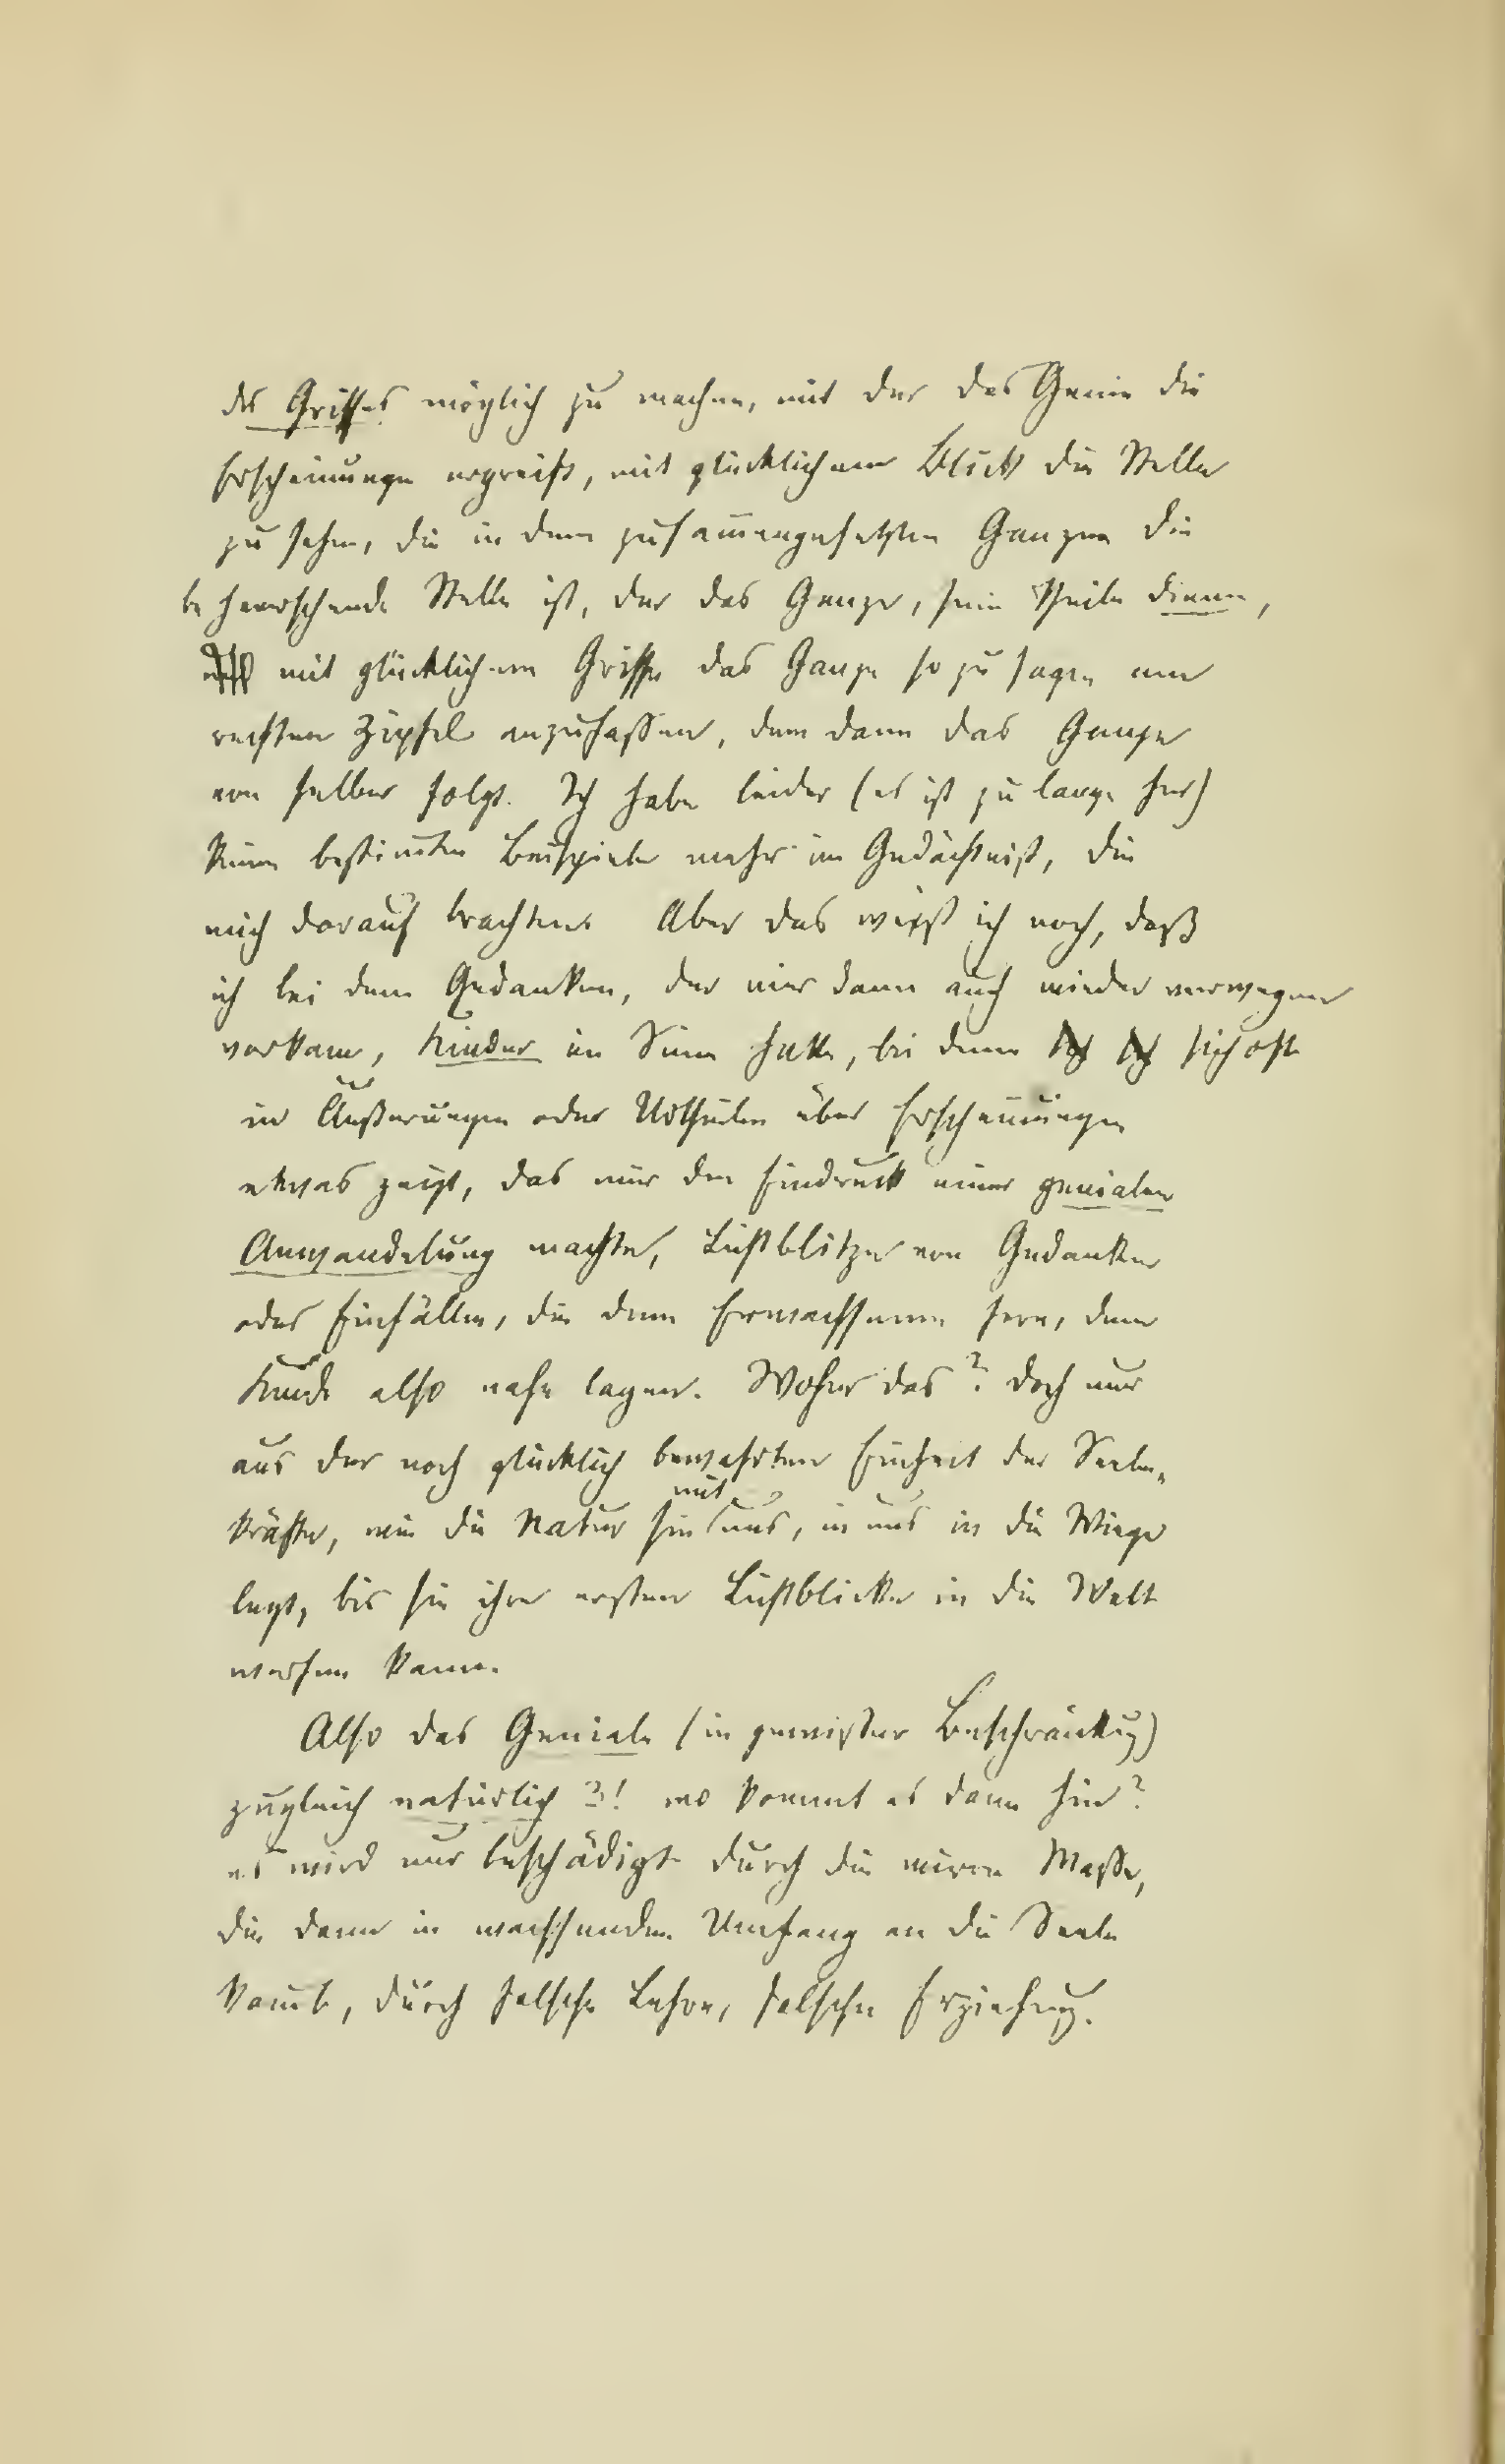 des Griffes möglich zu machen, mit der das Genie die
Erscheinungen ergreift, mit glücklichem Blick die Stelle
zu sehen, die in dem zusam̄engesetzten Ganzen die
beherrschende Stelle ist, der das Ganze, seine Theile dienen,
mit glücklichem Griffe das Ganze so zu sagen am
rechten Zipfel anzufassen, dem dann das Ganze
von selber folgt. Ich habe leider (es ist zu lange her)
keine bestim̄ten Beispiele mehr im Gedächtniß, die
mich darauf brachten. Aber das weiß ich noch, daß
ich bei dem Gedanken, der mir dann auch wieder verwegen
vorkam, Kinder im Sinne hatte, bei denen sich oft
in Äußerungen oder Urtheilen über Erscheinungen
etwas zeigt, das mir den Eindruck einer genialen
Anwandelung machte, Lichtblitze von Gedanken
oder Einfällen, die dem Erwachsenen fern, dem
Kinde also nahe lagen. Woher das? doch nur
aus der noch glücklich bewahrten Einheit der Seelen-
kräfte, wie die Natur sie mit uns, in uns in die Wiege
legt, bis sie ihre ersten Lichtblicke in die Welt
werfen kann.
Also das Geniale (in gewisser Beschränkung)
zugleich natürlich?! wo kommt es dann hin?
es wird nur beschädigt durch die wirre Masse,
die dann in wachsendem Umfang an die Seele
kom̄t, durch falsche Lehre, falsche Erziehung.